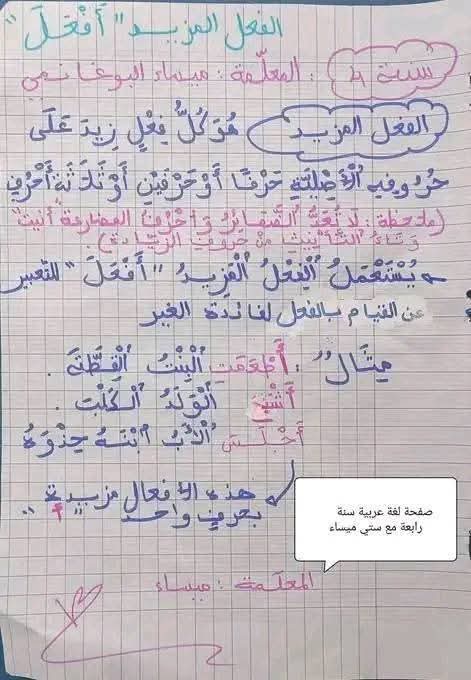 الفعل المزيد "أَفْعَلَ"
سنة 4 : المعلّمة : ميساء البوغانمي
الفعل المزيد هُوَ كُلُّ فِعْلٍ زِيدَ عَلَى
حُرُوفِهِ الْأَصْلِيَّةِ حَرْفًا أَوْ حَرْفَيْنِ أَوْ ثَلَاثَةَ أَحْرُفٍ
(ملاحظة : لَا تُعَدُّ الضَّمَائِرُ وَأَحْرُفُ المضارعة أنيت
وَتَاءُ التَّأْنِيثِ مِنْ حُرُوفِ الزِّيَادَةِ).
يُسْتَعْمَلُ الْفِعْلُ الْمَزِيدُ "أَفْعَلَ" للتعبير
عن القيام بالفعل لفائدة الغير
مِثَال : أَطْعَمَتِ الْبِنْتُ الْقِطَّةَ .
أَشْبَعَ الْوَلَدُ الْكَلْبَ .
أَجْلَسَ الْأَبُ ابْنَهُ حِذْوَهُ
هذه الأفعال مزيدة
بحرف واحد "أ"
صفحة لغة عربية سنة
رابعة مع ستي ميساء
المعلّمة : ميساء